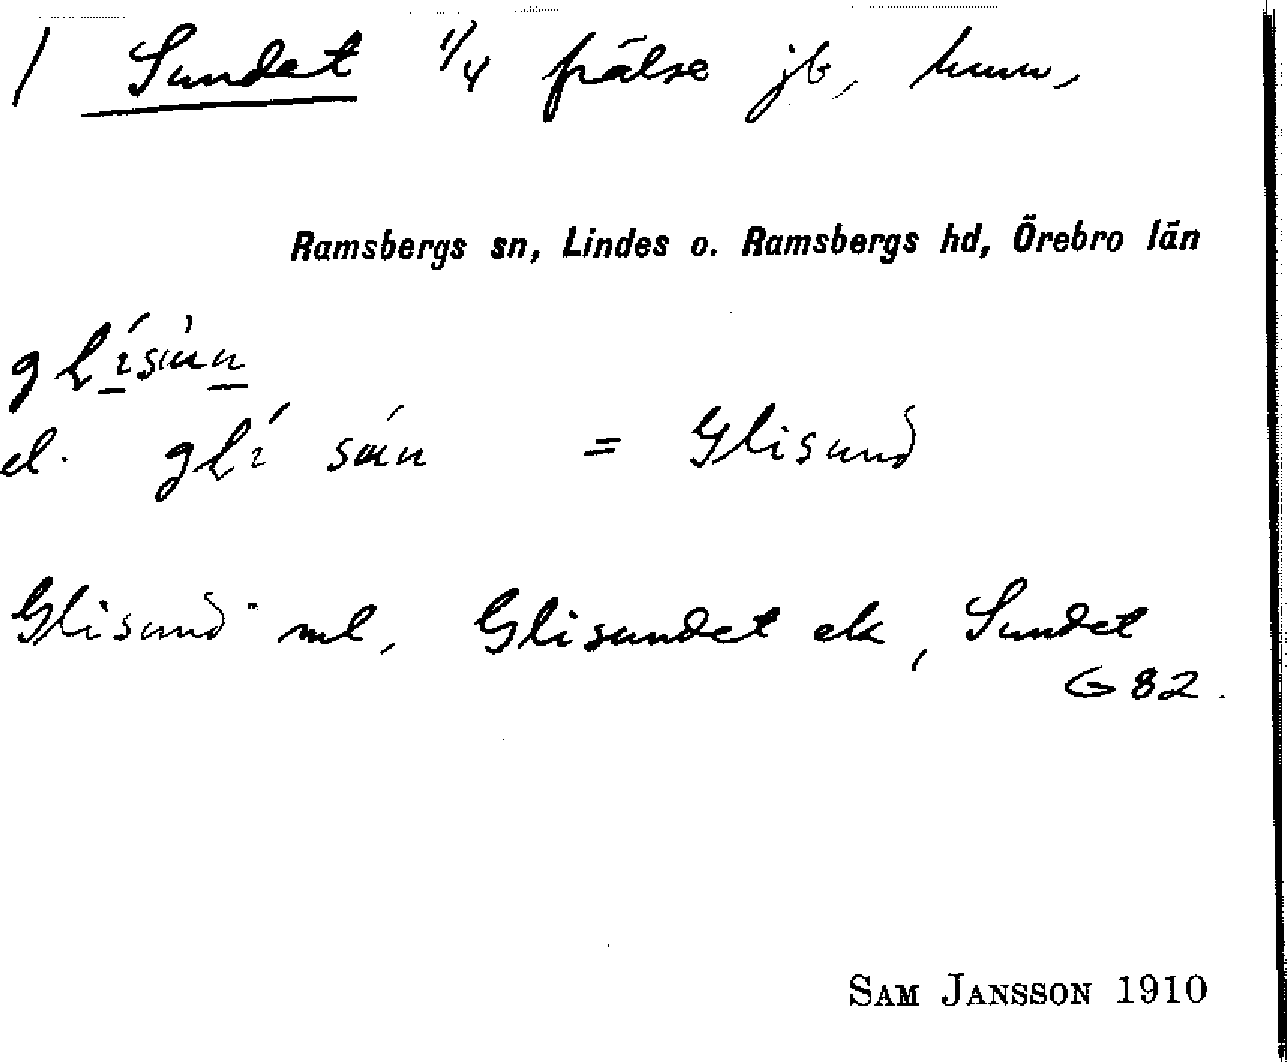 / Sundet 1/4 frälse jb, hmn,
Ramsbergs sn, Lindes o. Ramsbergs hd, Örebro län
el. = Glisund
Glisund ml, Glisundet ek, Sundet
G 82.
SAM JANSSON 1910